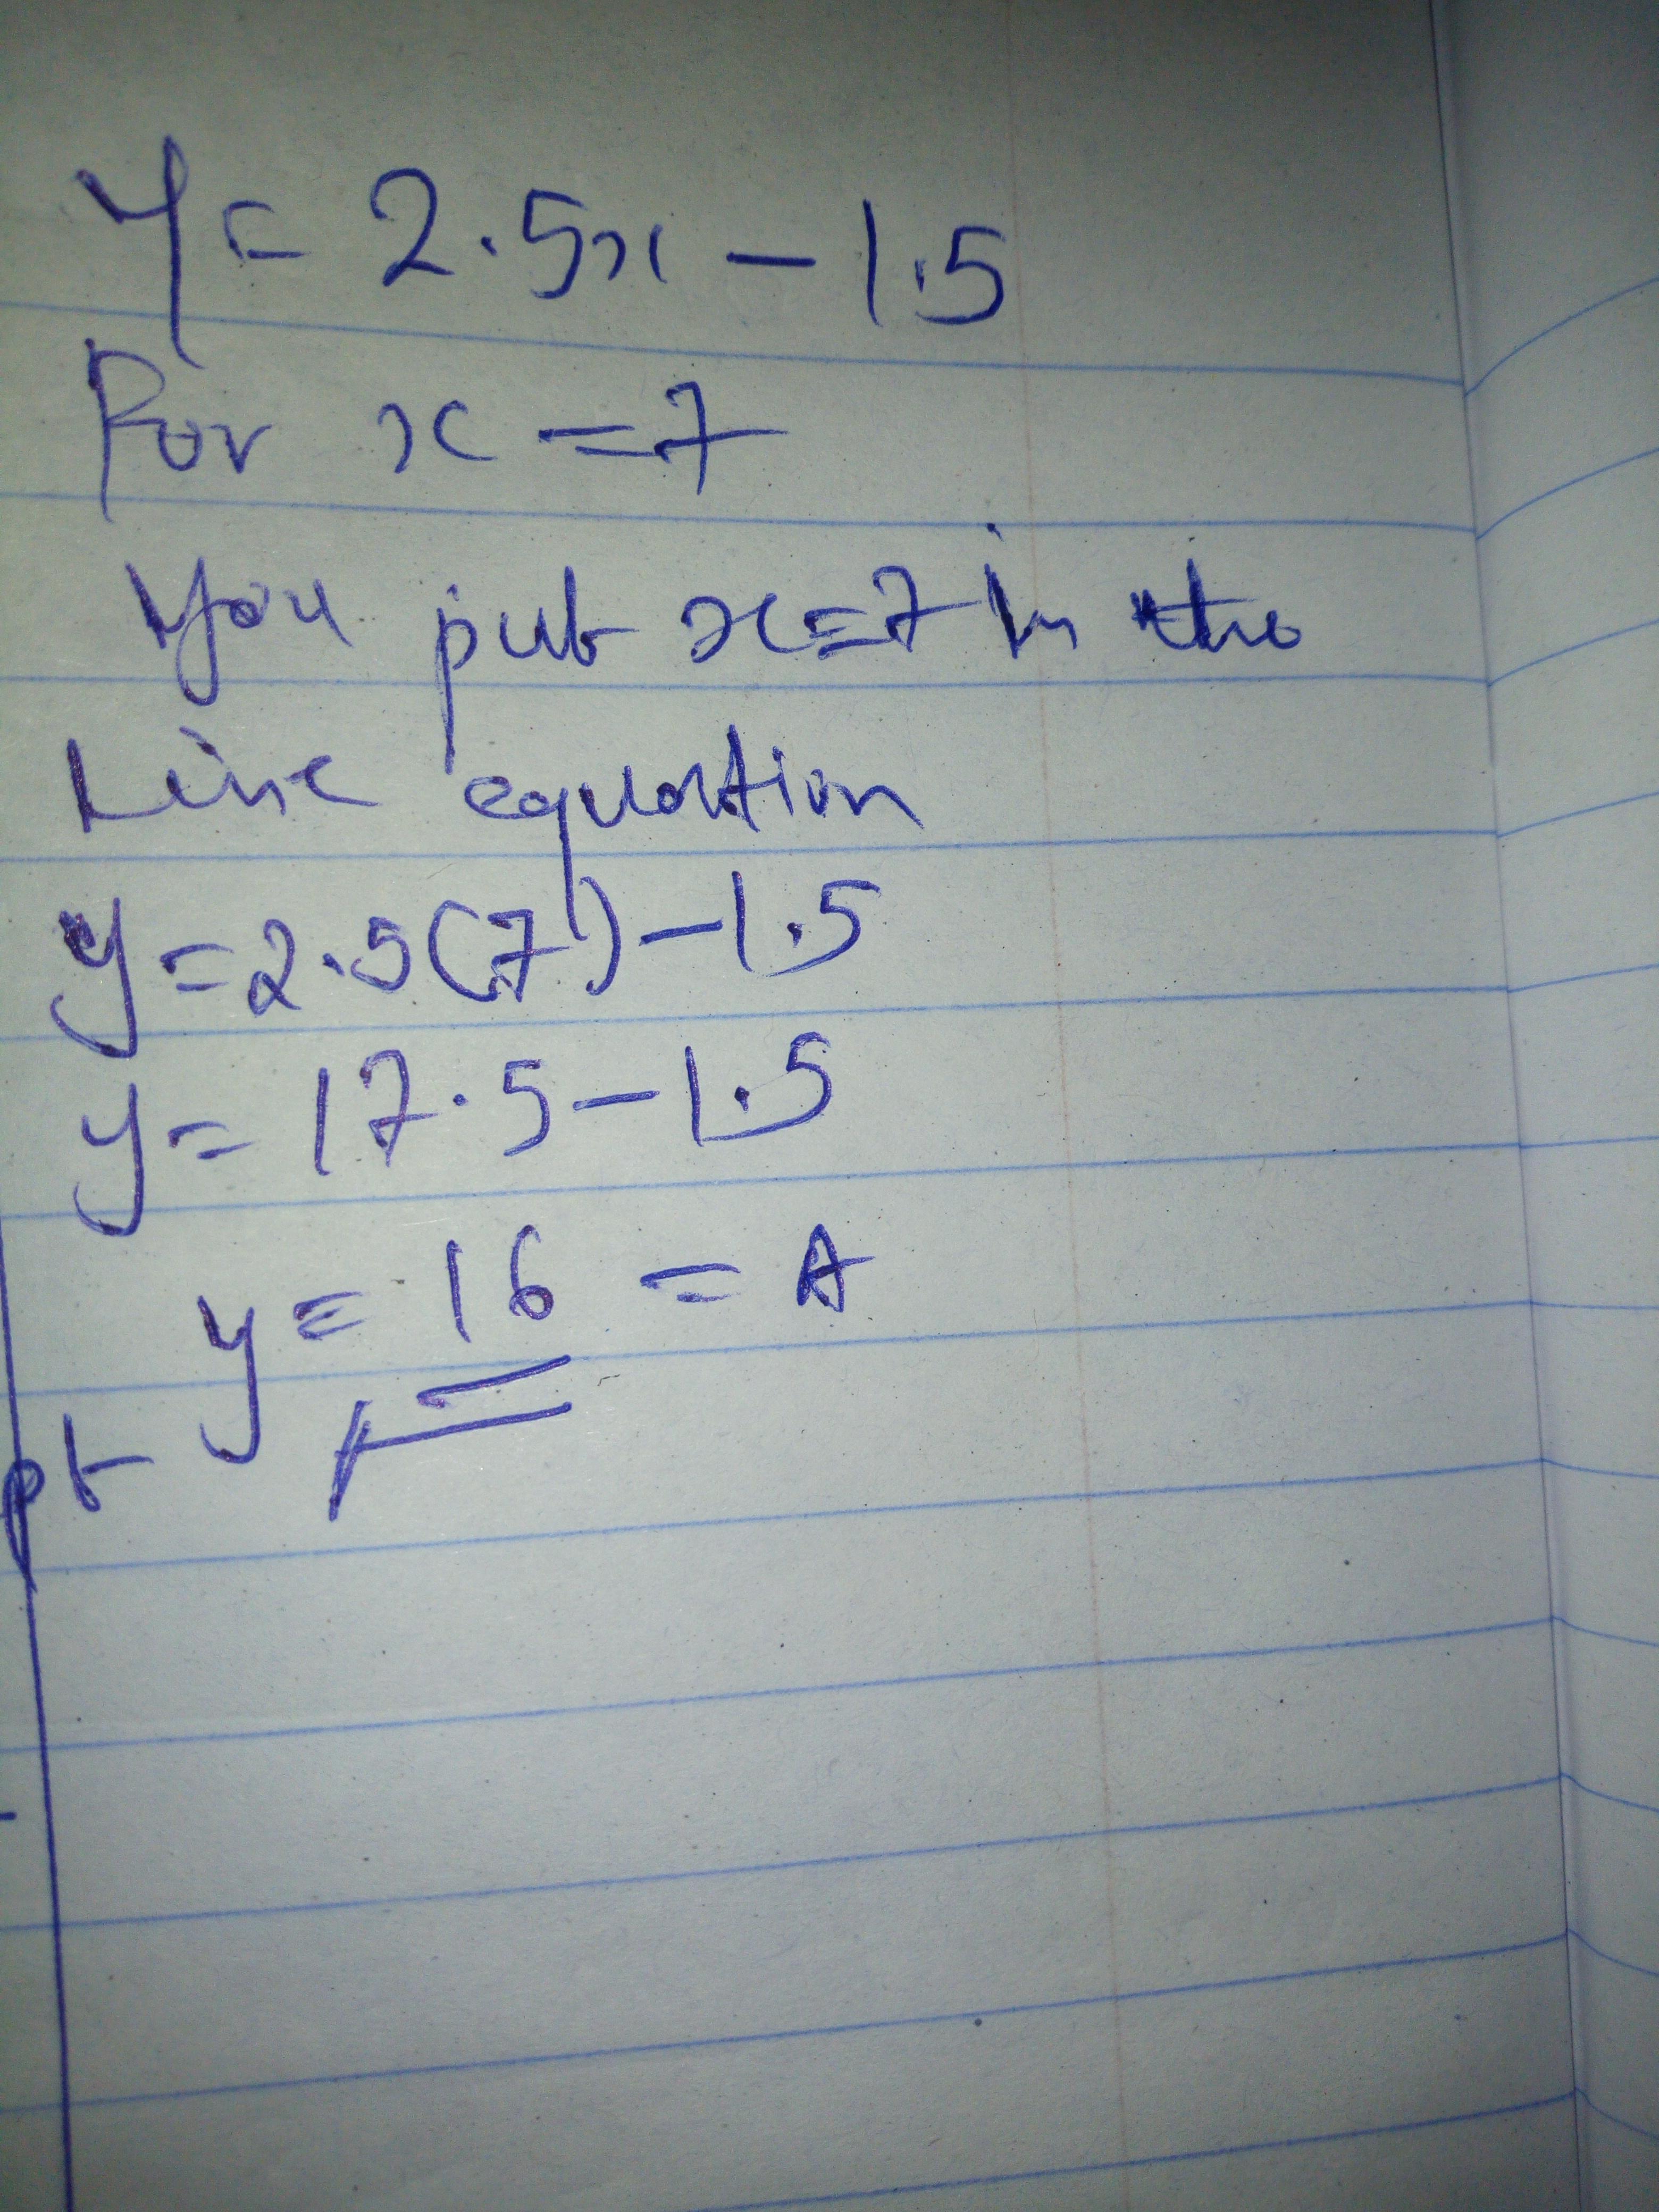 y = 2.5x - 1.5
For x = 7
You put x=7 in the
Line equation
y = 2.5(7) - 1.5
y = 17.5 - 1.5
y = 16 = A
pt